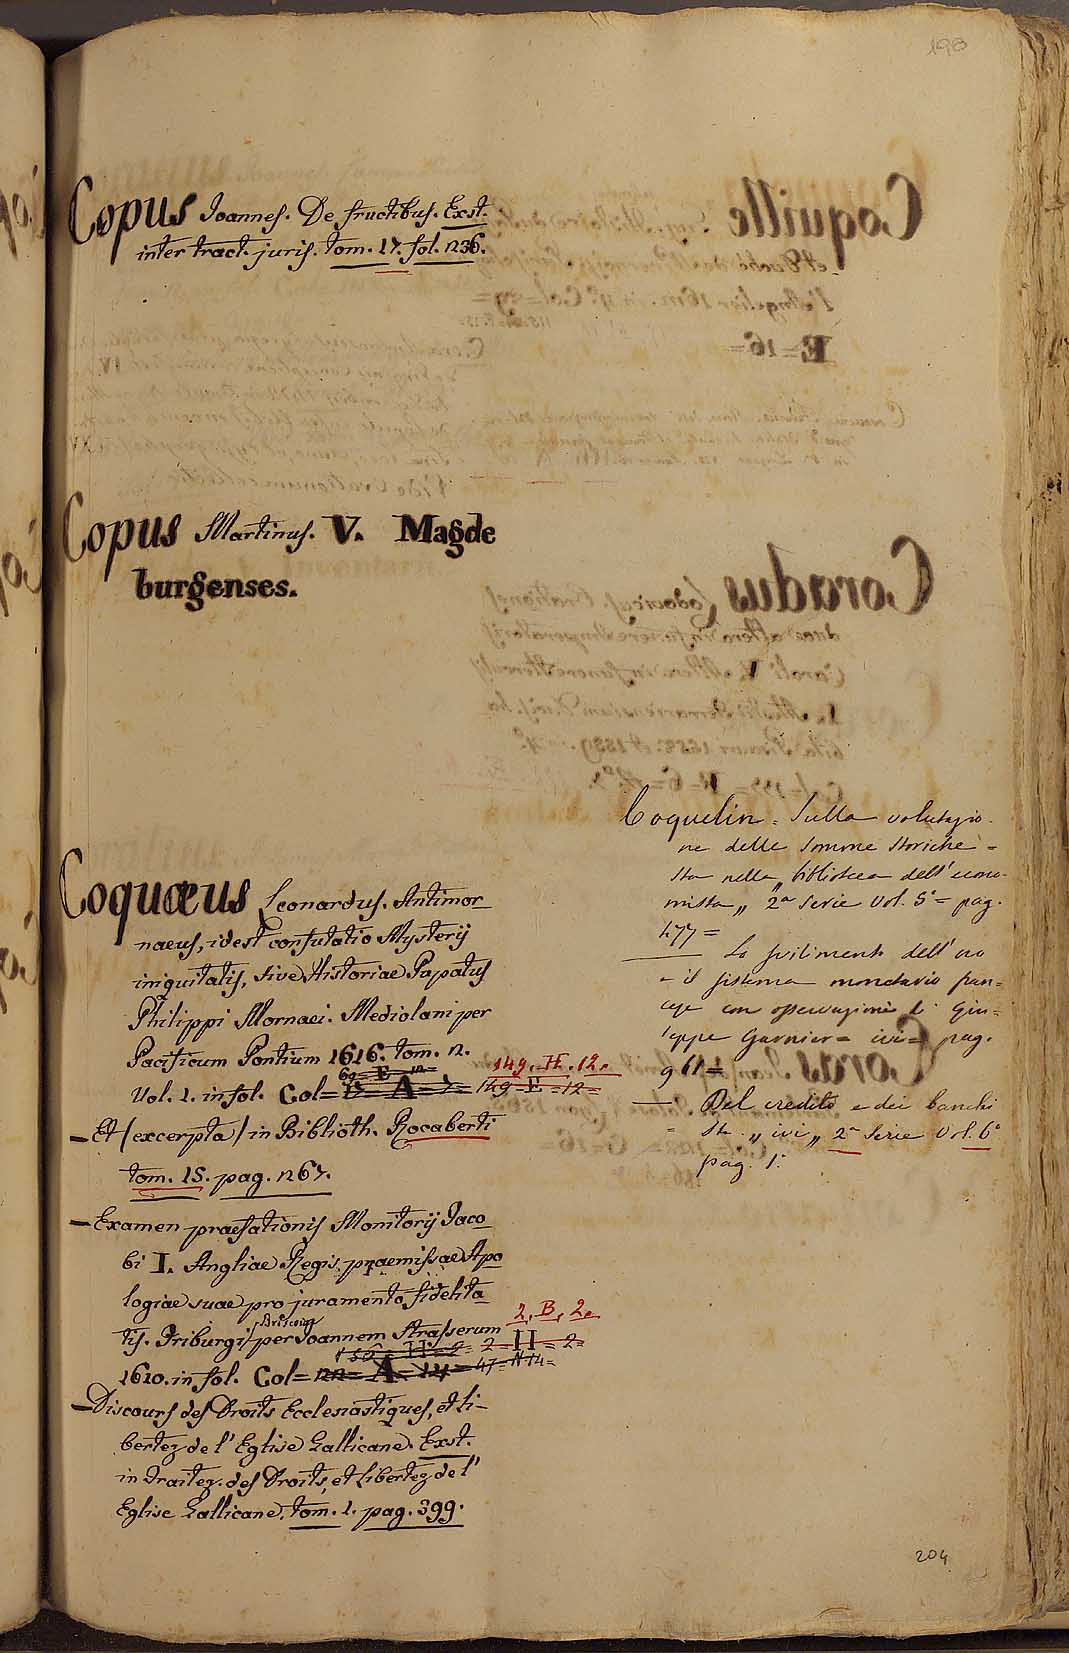 198
Copus Joannes. De fructibus. Exst.
inter tract. juris. tom. 17. fol. 236.
Copus Martinus. V. Magde
burgenses.
Coquæus Leonardus. Antimor_
naeus, idest confutatio Mysterij
iniquitatis, sive Historiae Papatus
Philippi Mornaei. Mediolani per
Pacificum Pontium 1616. tom. 2.
149. H. 12.
Vol. 1. in fol. Col= 149 = E = 12 =
— Et (excerpta) in Biblioth. Rocaberti
tom. 15. pag. 267.
— Examen praefationis Monitorij Jaco_
bi I. Angliae Regis praemissae Apo_
logiae suae pro juramento fidelita_
2. B. 2.
tis. Friburgi Briscoiæ per Joannem Strasserum
2 = H = 2 =
1610. in fol. Col= 22 = A = 14 = 47 = N 14 =
— Discours des Droits Ecclesiastiques, et li_
bertez de l' Eglise Gallicane. Exst.
in Traitez. des Droits, et libertez de l'
Eglise Gallicane. tom. 1. pag. 399.
Coquelin = Sulla valutazio_
ne delle somme storiche =
Sta nella „ biblioteca dell' econo_
mista „ 2a Serie Vol. 5° = pag.
477 =
— Lo svilimento dell' oro
= il sistema monetario fran=
cese con osservazioni di Giu=
seppe Garnier = ivi = pag.
961 =
— Del credito e dei banchi
= Sta „ ivi „ 2a Serie Vol. 6°
pag. 1.
204